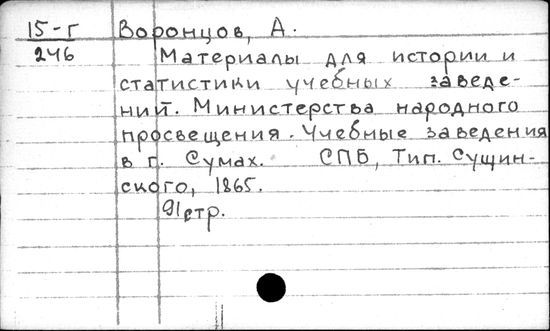 15-Г Воронцов, А.
246 Материалы для истории и
статистики учебных заведе-
ний. Министерства народного
просвещения. Учебные заведения
в г. Сумах. СПБ, Тип. Сущин-
ского, 1865.
91стр.